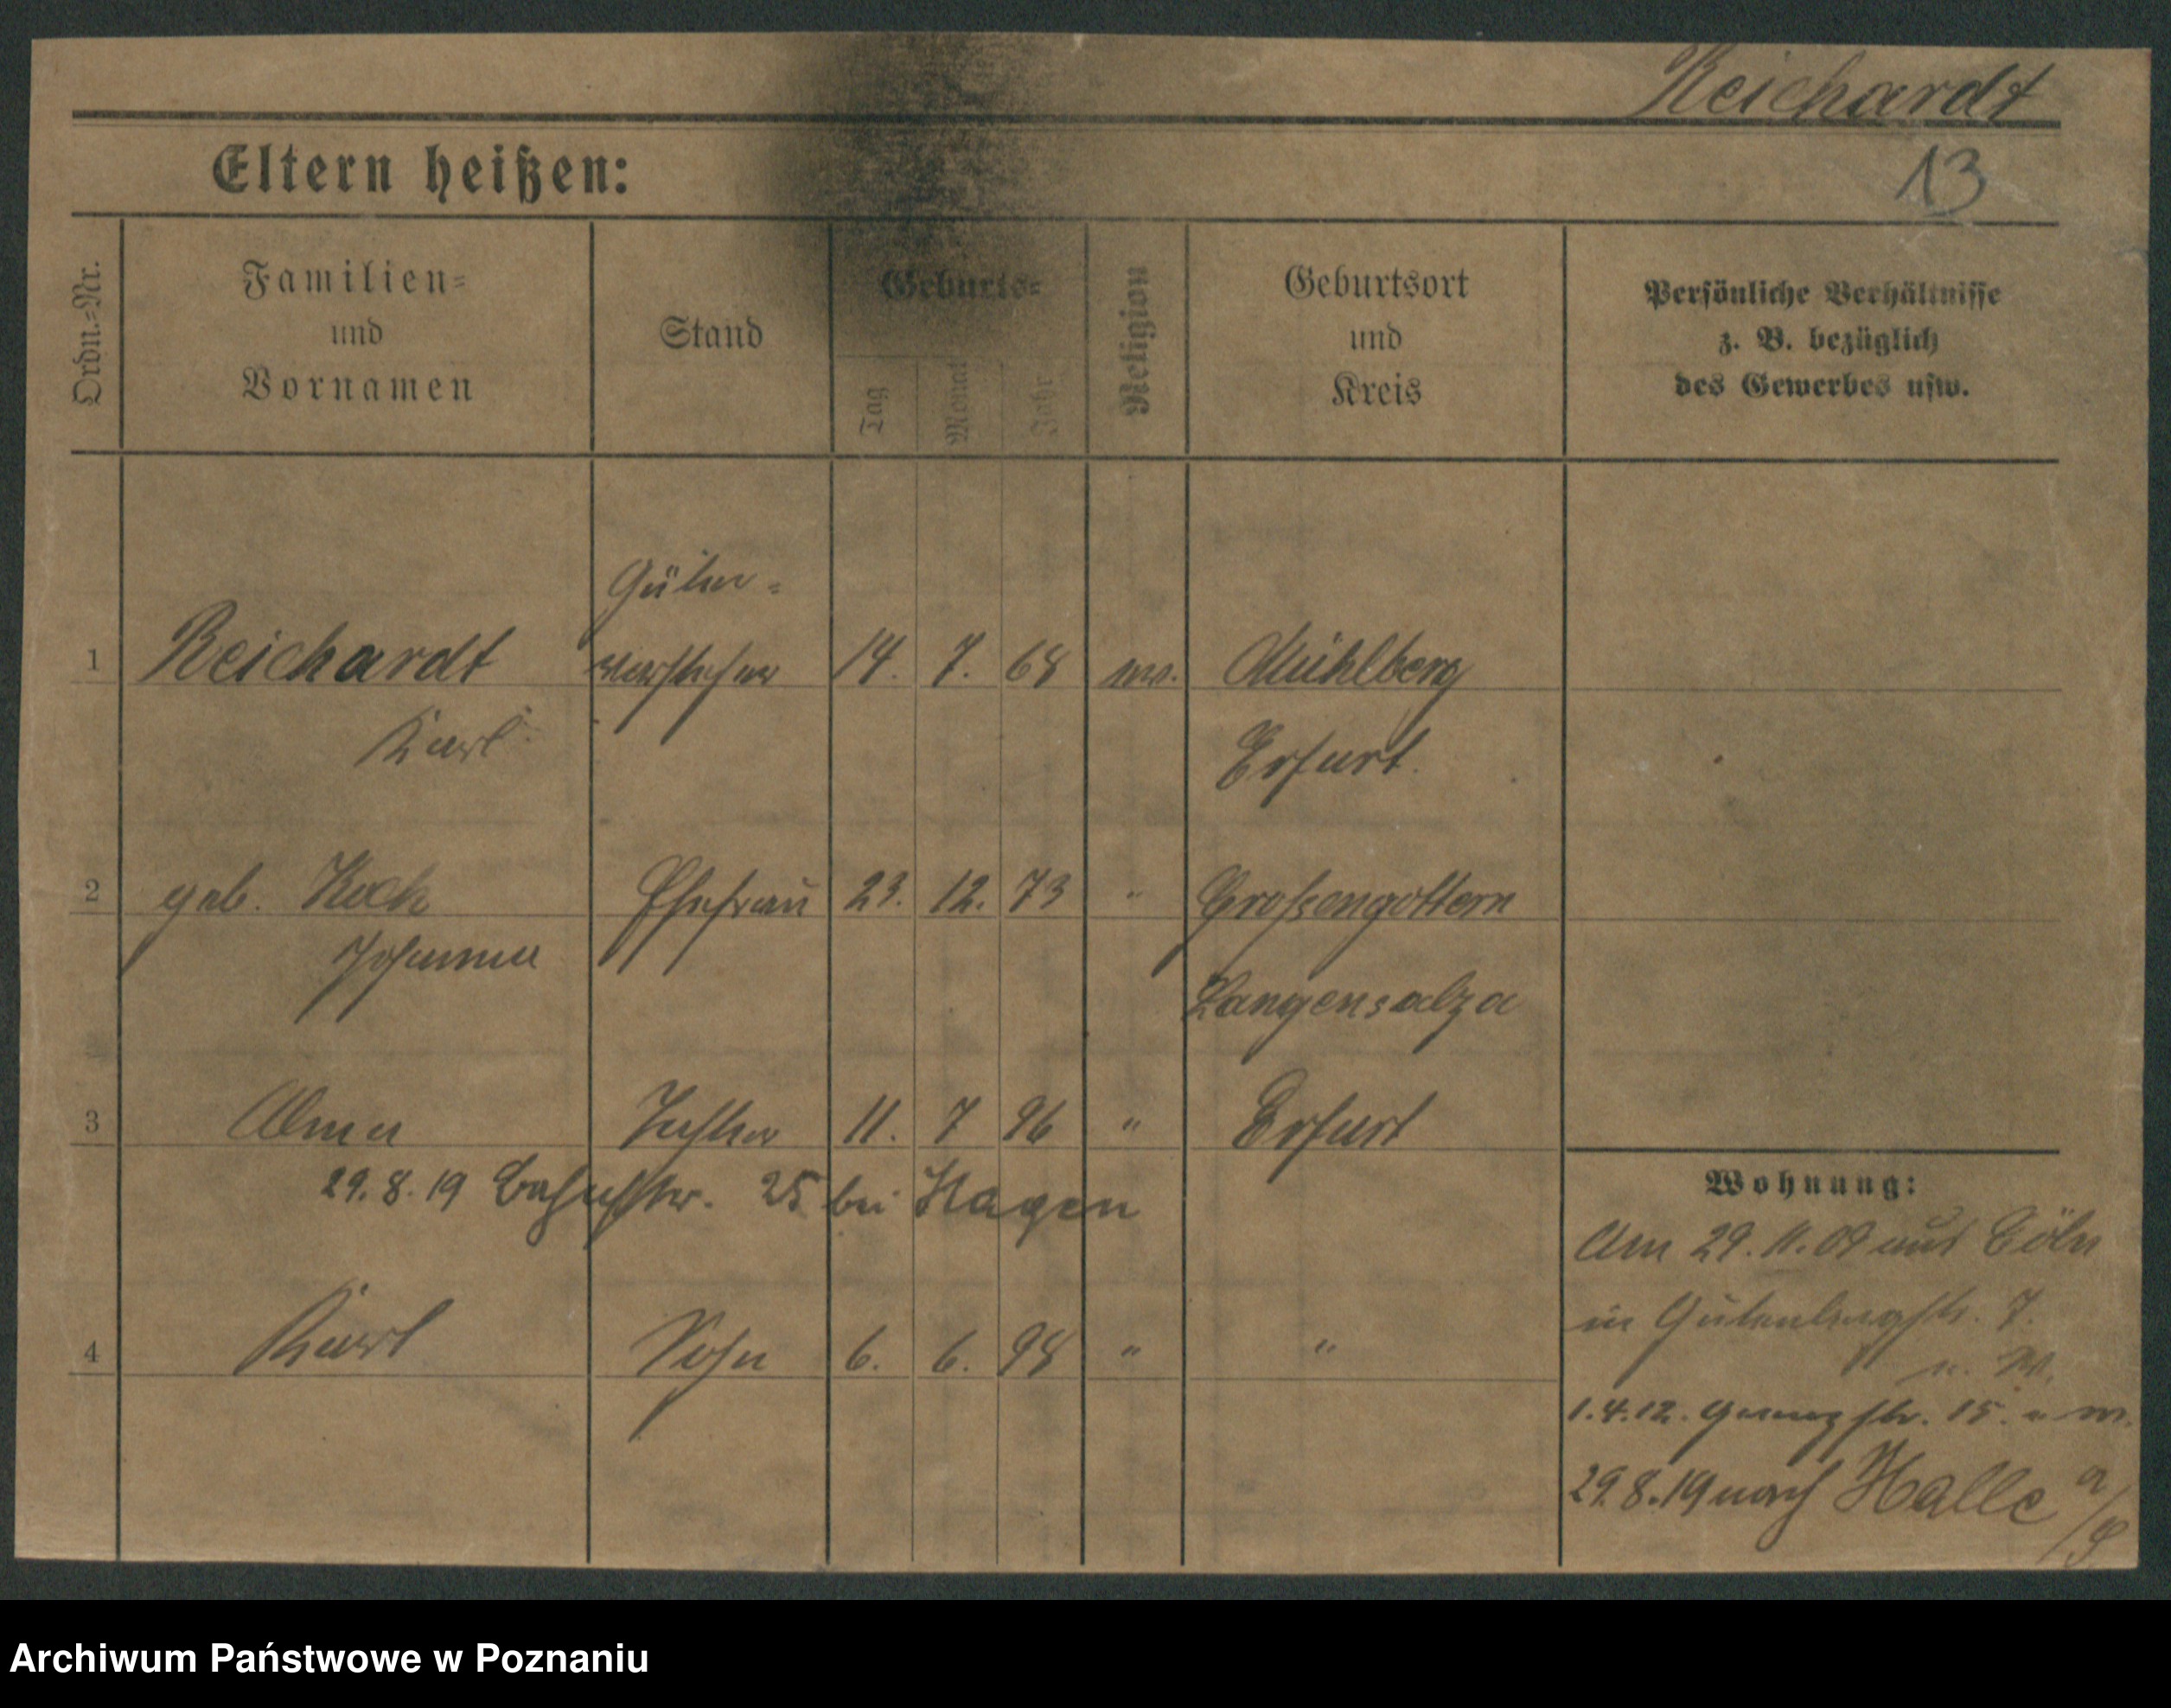 Reichardt
13
Eltern heißen:
Ordn.=Nr.
Familien=
und
Vornamen
Stand
Geburts=
Tag
Monat
Jahr
Religion
Geburtsort
und
Kreis
Persönliche Verhältnisse
z. B. bezüglich
des Gewerbes usw.
Güter=
1 Reichardt vorsteher 14. 7. 68 ev. Mühlberg
Karl Erfurt.
2 geb. Koch Ehefrau 23. 12. 73 " Großengottern
Johanna Langensalza
3 Alma Tochter 11. 7 96 " Erfurt
29.8.19 Bahnhofstr. 25 bei Hagen
4 Karl Sohn 6. 6. 98 " "
Wohnung:
Am 29.11.09 aus Cöln
in Gutenbergstr. 7.
1.4.12. 15.
29.8.19 nach Halle a/S
Archiwum Państwowe w Poznaniu